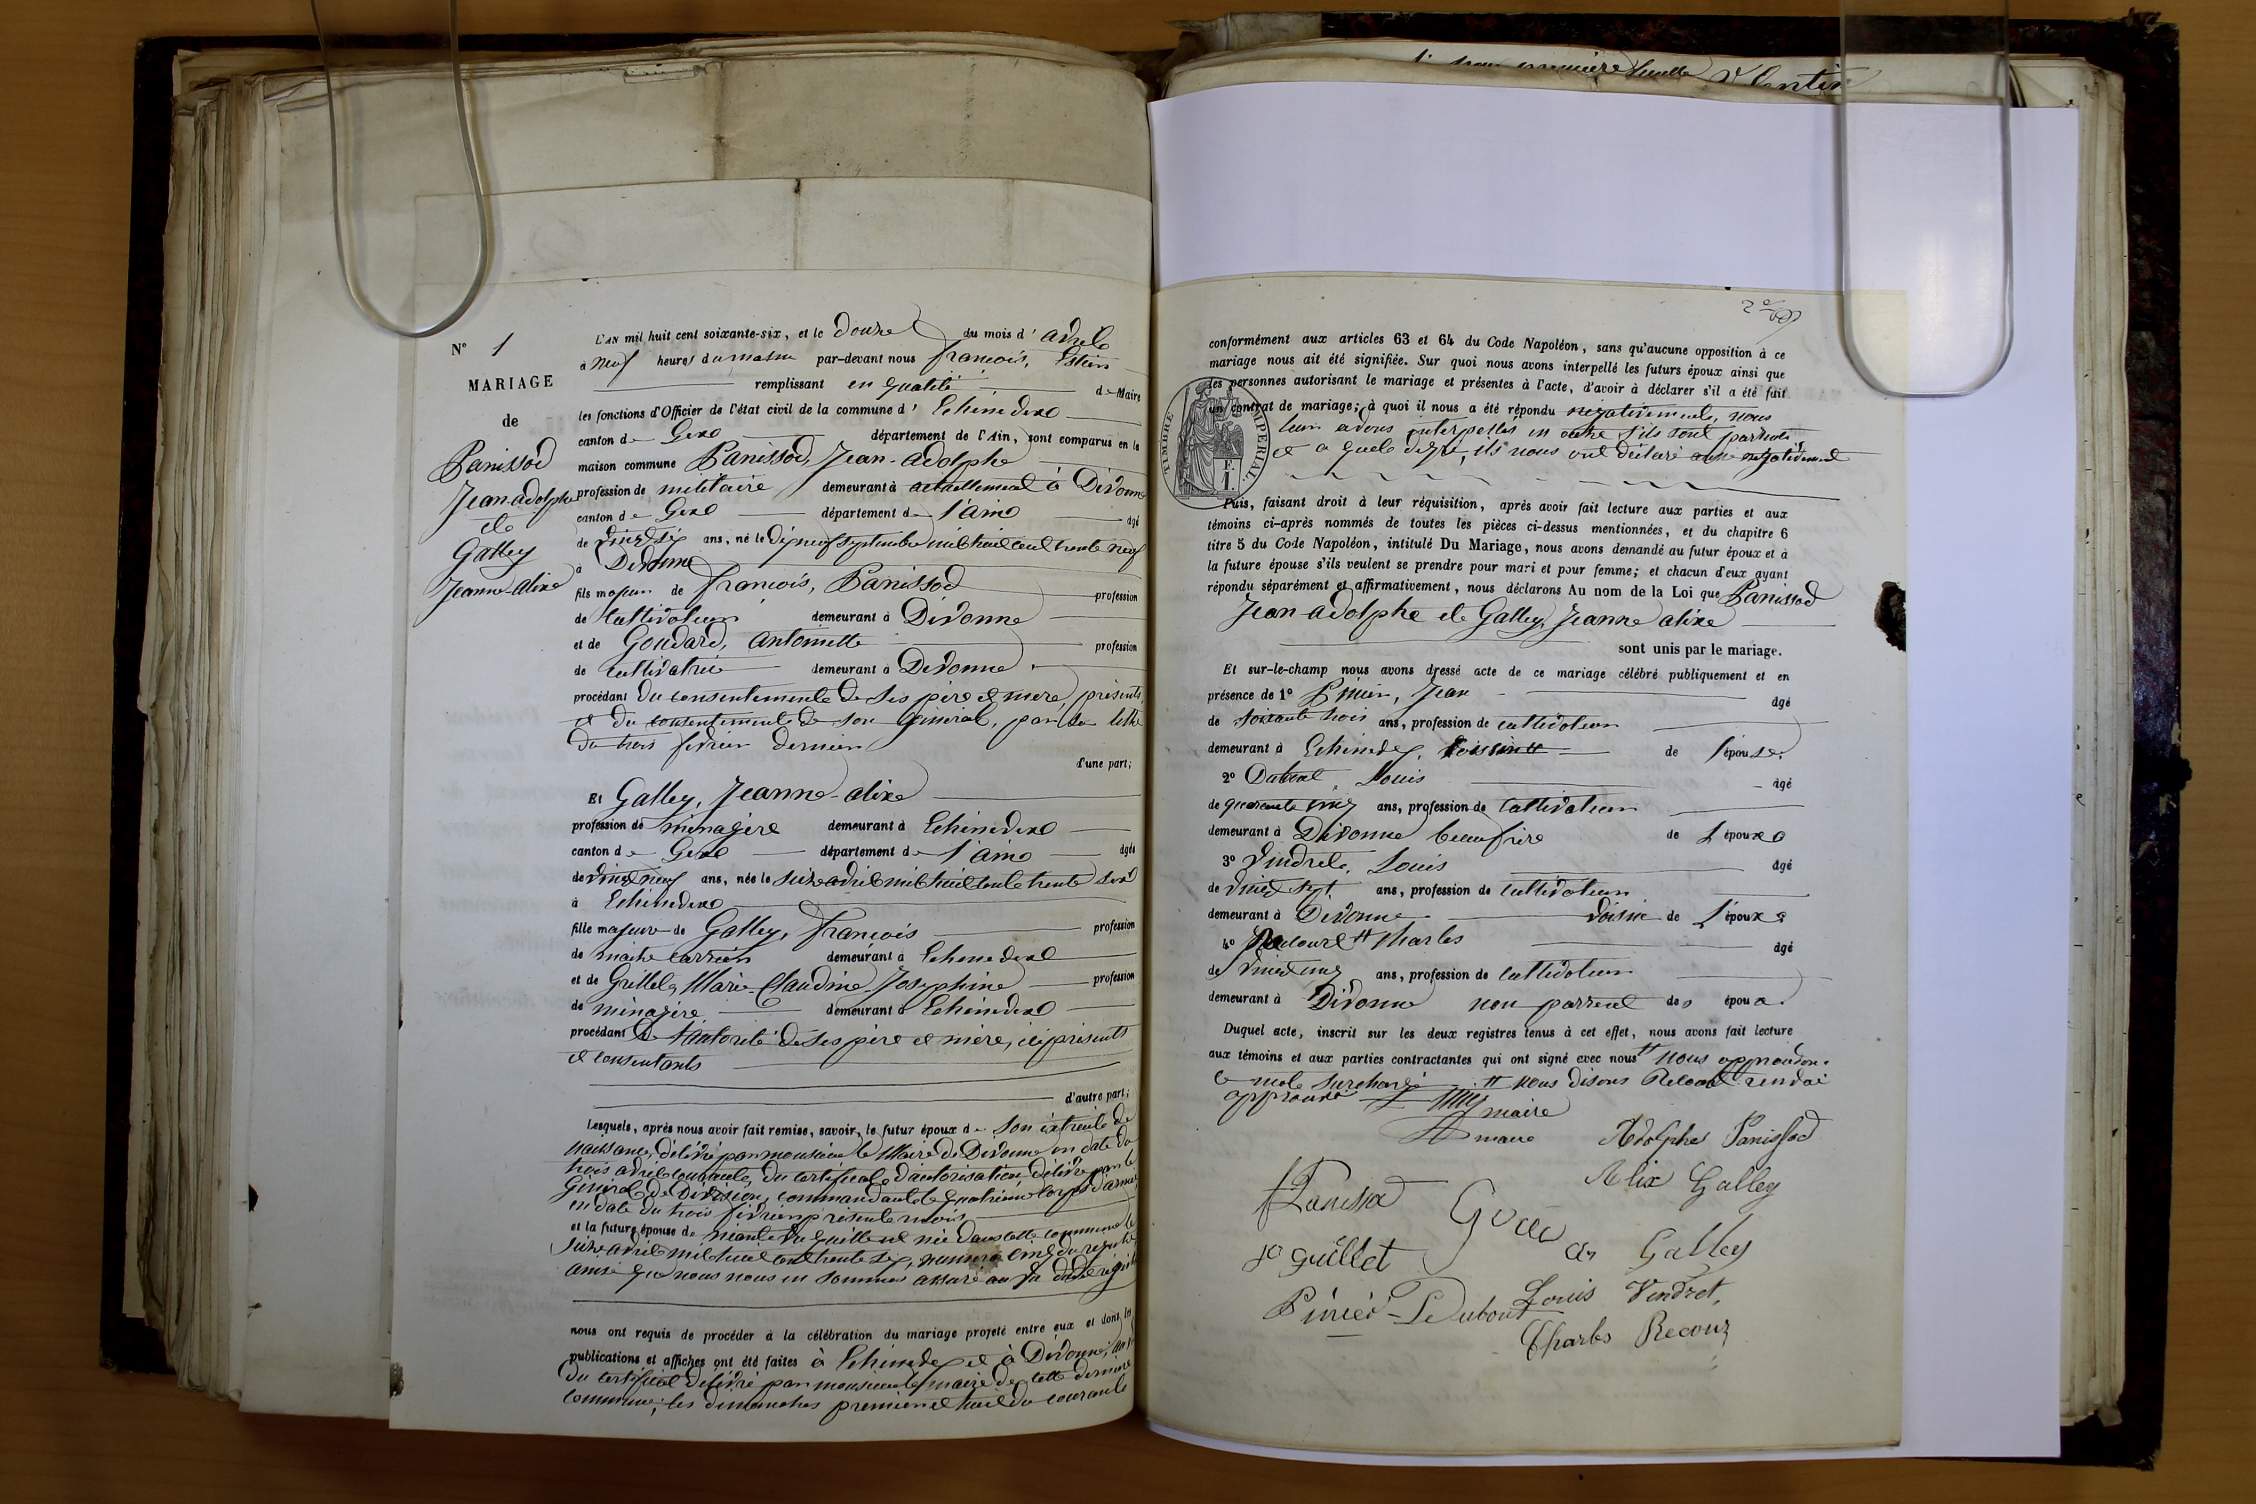 N° 1
MARIAGE
de
Panissod
Jean-adolphe
et
Galley
Jeanne-alixe
L'AN mil huit cent soixante-six, et le douze du mois d' avril
à neuf heures du matin par-devant nous françois,
remplissant en qualité de Maire
les fonctions d'Officier de l'état civil de la commune d' Echenevex
canton de Gexe département de l'Ain, sont comparus en la
maison commune Panissod, Jean-adolphe
profession de militaire demeurant à actuellement à Divonne
canton de Gexe département de l'aine âgé
de vingt six ans, né le dix neuf septembre mil huit cent trente neuf
à Divonne
fils majeur de françois, Panissod profession
de Cultivateur demeurant à Divonne
et de Goudard, antoinette profession
de cultivatrice demeurant à Divonne
procédant du consentement de ses père et mère, présents
et du consentement de son Général, par sa lettre
du trois février dernier
d'une part;
Et Galley, Jeanne-alixe
profession de ménagère demeurant à Echenevexe
canton de Gexe département de l'aine âgée
de vingt neuf ans, née le seize avril mil huit cent trente six
à Echenevexe
fille majeure de Galley, françois profession
de maître carrier demeurant à Echenevexe
et de Grillet, Marie-Claudine-Josephine profession
de ménagère demeurant à Echenevexe
procédant de l'autorité de ses père et mère, ici présents
et consentants
d'autre part;
Lesquels, après nous avoir fait remise, savoir, le futur époux de Son extrait de
naissance, délivré par monsieur le Maire de Divonne en date du
trois avril courant, du certificat d'autorisation délivré par le
Général de Division, commandant le quatrième corps d'armée
en date du trois février présente mois
et la future épouse de née dans cette commune le
seize avril mil huit cent trente six, numéro cinq du registre
ainsi que nous nous en sommes assuré au vu dudit registre
nous ont requis de procéder à la célébration du mariage projeté entre eux et dont les
publications et affiches ont été faites à Echenevex et à Divonne, au vu
du certificat délivré par monsieur le maire de cette dernière
commune; les dimanches premier et huit du courant
conformément aux articles 63 et 64 du Code Napoléon, sans qu'aucune opposition à ce
mariage nous ait été signifiée. Sur quoi nous avons interpellé les futurs époux ainsi que
les personnes autorisant le mariage et présentes à l'acte, d'avoir à déclarer s'il a été fait
un contrat de mariage; à quoi il nous a été répondu négativement, nous
leur avons interpellés en outre s'ils sont parents
et a quel degré, ils nous ont déclaré négativement
TIMBRE IMPÉRIAL
Puis, faisant droit à leur réquisition, après avoir fait lecture aux parties et aux
témoins ci-après nommés de toutes les pièces ci-dessus mentionnées, et du chapitre 6
titre 5 du Code Napoléon, intitulé Du Mariage, nous avons demandé au futur époux et à
la future épouse s'ils veulent se prendre pour mari et pour femme; et chacun d'eux ayant
répondu séparément et affirmativement, nous déclarons Au nom de la Loi que Panissod
Jean-adolphe et Galley, Jeanne alixe
sont unis par le mariage.
Et sur-le-champ nous avons dressé acte de ce mariage célébré publiquement et en
présence de 1° Jean âgé
de soixante trois ans, profession de cultivateur
demeurant à Echenevex, de l'épouse.
2° Louis âgé
de quarante cinq ans, profession de Cultivateur
demeurant à Divonne beau frère de l'époux
3° Vindret, Louis âgé
de vingt sept ans, profession de Cultivateur
demeurant à Divonne voisin de l'époux
4° Charles âgé
de vingt cinq ans, profession de Cultivateur
demeurant à Divonne non parent des époux.
Duquel acte, inscrit sur les deux registres tenus à cet effet, nous avons fait lecture
aux témoins et aux parties contractantes qui ont signé avec nous nous approuvons
le mot surchargé nous disons
approuvé
maire
maire
Adolphe Panissod
Alix Galley
Galley
Louis Vindret,
Charles Recour